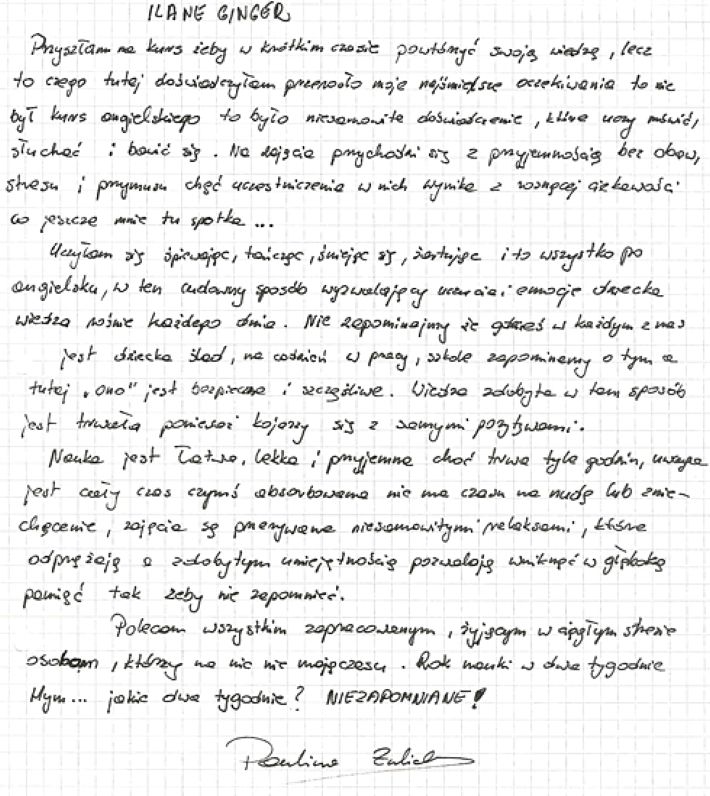 ILANE GINGER
Przyszłam na kurs żeby w krótkim czasie powtórzyć swoją wiedzę, lecz
to czego tutaj doświadczyłam przerosło moje najśmielsze oczekiwania to nie
był kurs angielskiego to było niesamowite doświadczenie, które uczy mówić,
słuchać i bawić się. Na zajęcia przychodzi się z przyjemnością bez obaw,
stresu i przymusu chęć uczestniczenia w nich wynika z rosnącej ciekawości
co jeszcze mnie tu spotka ...
Uczyłam się śpiewając, tańcząc, śmiejąc się, żartując i to wszystko po
angielsku, w ten cudowny sposób wyzwalający uczucia i emocje dziecka
wiedza rośnie każdego dnia. Nie zapominajmy że gdzieś w każdym z nas
jest dziecka ślad, na codzień w pracy, szkole zapominamy o tym a
tutaj "ono" jest bezpieczne i szczęśliwe. Wiedza zdobyta w tem sposób
jest trwała ponieważ kojarzy się z samymi pozytywami.
Nauka jest łatwa, lekka i przyjemna choć trwa tyle godzin, uwaga
jest cały czas czymś absorbowana nie ma czasu na nudę lub znie-
chęcenie, zajęcia są przerywane niesamowitymi relaksami, które
odprężają a zdobytym umiejętnością pozwalają wniknąć w głęboką
pamięć tak żeby nie zapomnieć.
Polecam wszystkim zapracowanym, żyjącym w ciągłym stresie
osobom, którzy na nic nie mają czasu. Rok nauki w dwa tygodnie
Hym... jakie dwa tygodnie? NIEZAPOMNIANE!
Paulina